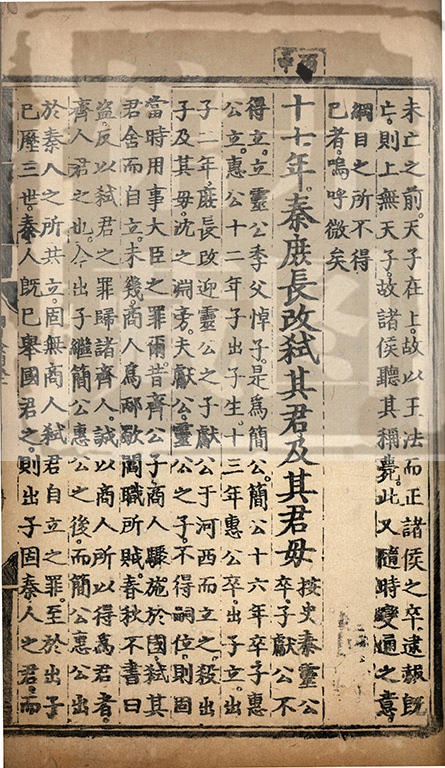 未亡之前。天子在上。故以王法而正諸侯之卒。逮赧既
亡。則上無天子。故諸侯聽其稱薨。此又隨時變通之意。
綱目之所不得
已者。嗚呼微矣
十七年。秦庶長改弒其君及其君毋
按史秦靈公
卒。子獻公不
得立。立靈公季父悼子。是為簡公。簡公十六年卒。子惠
公立。惠公十二年子出子生。十三年惠公卒。出子立。出
子二年。庶長改迎靈公之子獻公于河西而立之。殺出
子及其毋。沈之淵旁。夫獻公。靈公之子。不得嗣位。則固
當時用事大臣之罪爾。昔齊公子商人驟施於國。弒其
君舍而自立。未幾。商人爲邴歜閻職所賊。春秋不書曰
盜。反以弒君之罪歸諸齊人。誠以商人所以得爲君者。
齊人君之也。今出子繼簡公惠公之後。而簡公惠公出
於秦人之所共立。固無商人弒君自立之罪。至於出子
已歷三世。秦人既已舉國君之。則出子固秦人之君。而